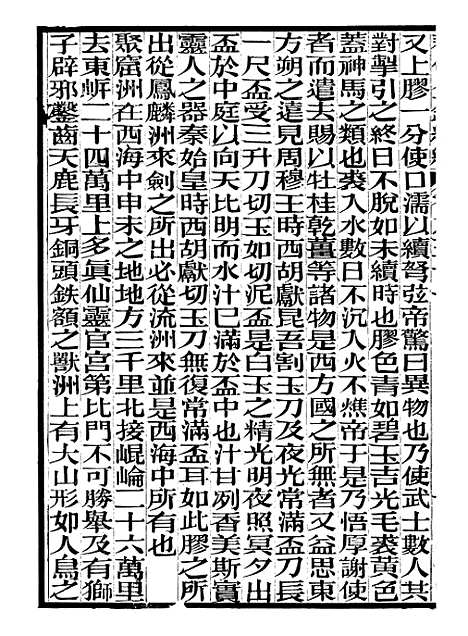 又上膠一分使口濡以續弩弦帝驚曰異物也乃使武士數人共
對掣引之終日不脫如未續時也膠色青如碧玉吉光毛裘黃色
蓋神馬之類也裘入水數日不沉入火不燋帝于是乃悟厚謝使
者而遣去賜以牡桂乾薑等諸物是西方國之所無者又益思東
方朔之遠見周穆王時西胡獻昆吾割玉刀及夜光常滿盃刀長
一尺盃受三升刀切玉如切泥盃是白玉之精光明夜照冥夕出
盃於中庭以向天比明而水汁巳滿於盃中也汁甘列香美斯實
靈人之器秦始皇時西胡獻切玉刀無復常滿盃耳如此膠之所
出從鳳麟洲來劍之所出必從流洲來並是西海中所有也
聚窟洲在西海中申未之地地方三千里北接崐崘二十六萬里
去東㟁二十四萬里上多眞仙靈官宮第比門不可勝舉及有獅
子辟邪鑿齒天鹿長牙銅頭鉄額之獸洲上有大山形如人鳥之